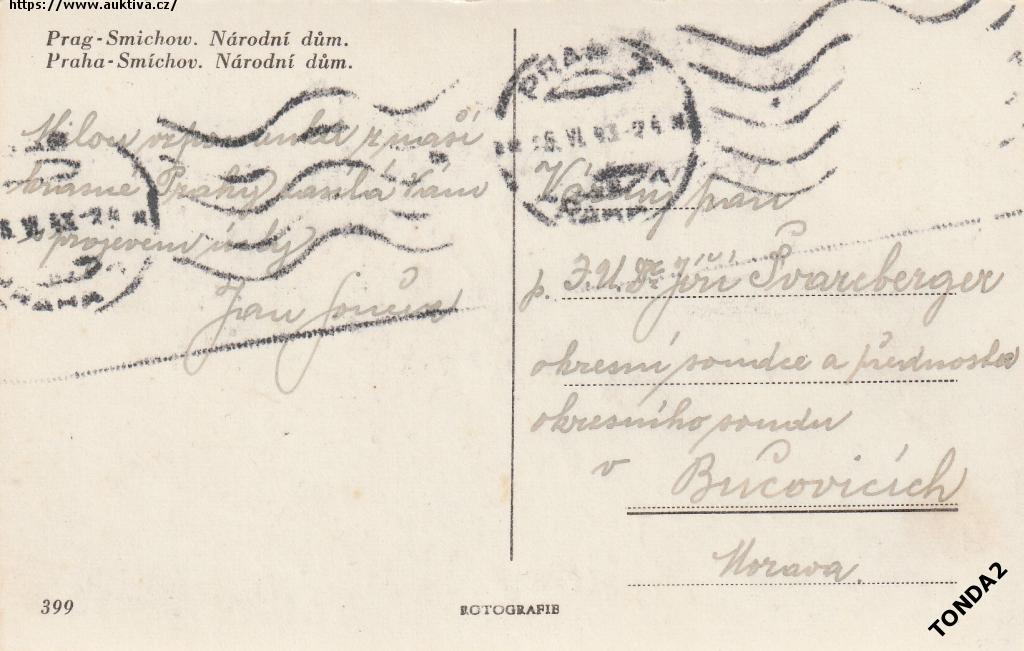 https://www.auktiva.cz/
Prag-Smichow. Národní dům.
Praha-Smíchov. Národní dům.
Milou vzpomínku z naší
krásné Prahy zasílá Vám
projevem úcty
Jan
PRAH
6. VI. 43 -24
6. VI. 43 -24
Vážený pán
p. J.U.Dr. Jiří Švarcberger
okresní soudce a přednosta
okresního soudu
v Bučovicích
Morava.
399
ROTOGRAFIE
TONDA2